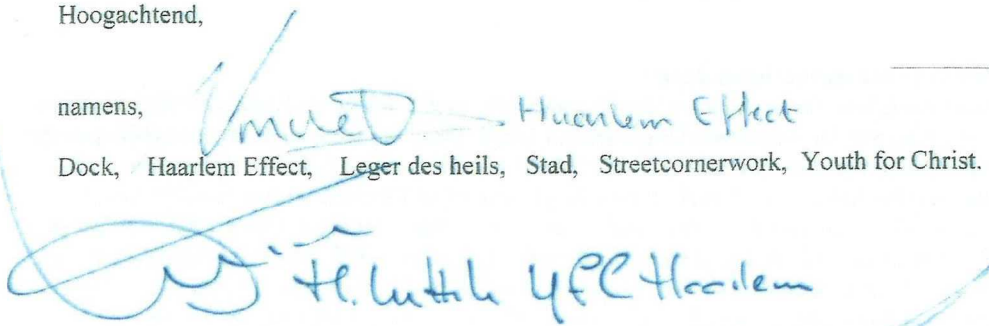 Hoogachtend,
namens,
Haarlem Effect
Dock, Haarlem Effect, Leger des heils, Stad, Streetcornerwork, Youth for Christ.
H. YfC Haarlem